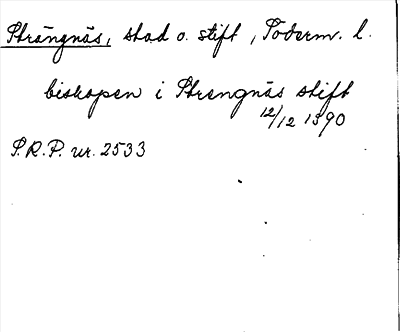 Strängnäs, stad o. stift, Söderm. l.
biskopen i Strengnäs stift
12/12 1390
S.R.P. nr. 2533